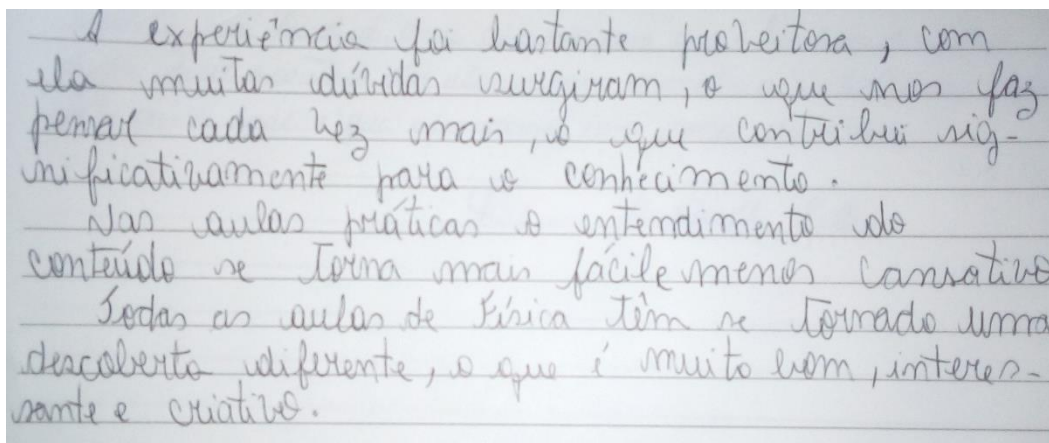 A experiência foi bastante proveitosa, com
ela muitas dúvidas surgiram, o que nos faz
pensar cada vez mais, o que contribui sig-
nificativamente para o conhecimento.
Nas aulas práticas o entendimento do
conteúdo se torna mais fácil e menos cansativo
Todas as aulas de Física têm se tornado uma
descoberta diferente, o que é muito bom, interes-
sante e criativo.